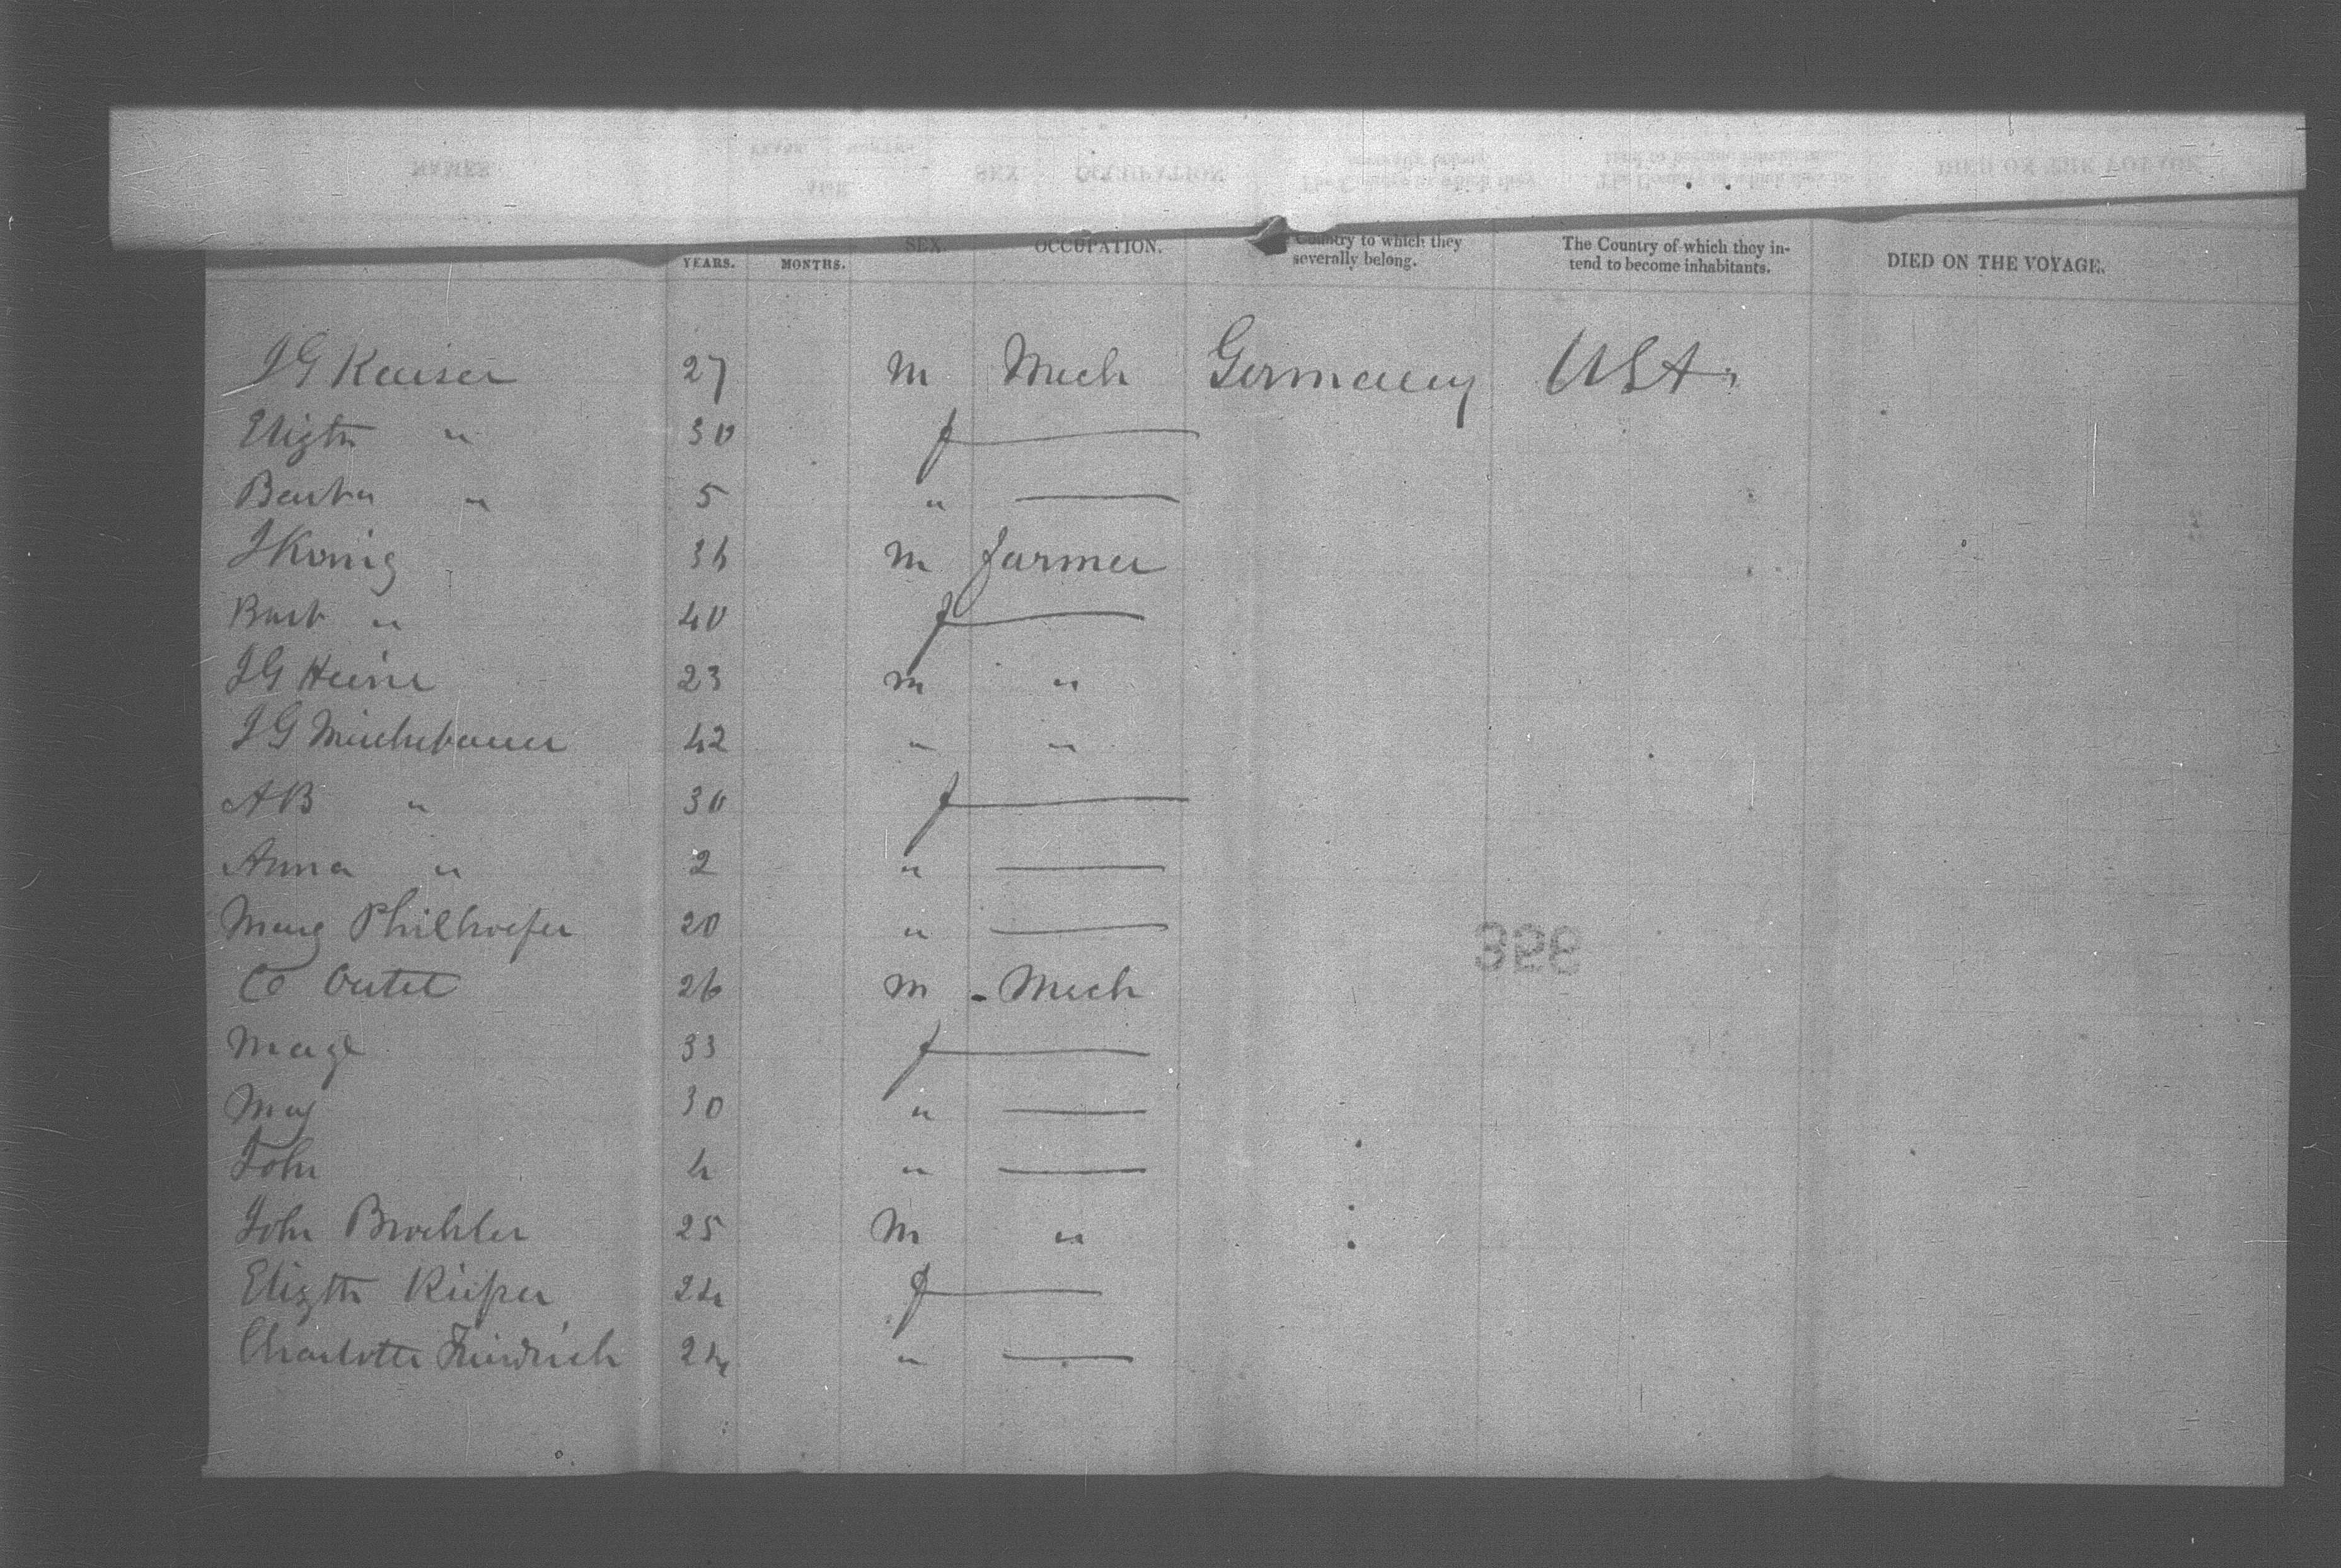 YEARS. MONTHS. SEX. OCCUPATION. Country to which they severally belong. The Country of which they intend to become inhabitants. DIED ON THE VOYAGE.
J G Kaiser 27 m Mech Germany USA.
Elizth " 30 f
Barba " 5 "
J Konig 36 m farmer
Barb " 40 f
J G Heine 23 m "
J G 42 " "
A B " 30 f
Anna " 2 "
Marg Philhoefer 20 "
26 m Mech
33 f
30 "
John 4 "
John Broehler 25 m "
Elizth 24 f
Charlotte Friedrich 24 "